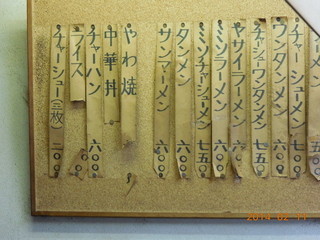 ーメン
チャーシューメン 七〇〇
ワンタンメン 六〇〇
チャーシューワンタンメン 七五〇
ヤサイラーメン 六〇〇
ミソラーメン 六〇〇
ミソチャーシューメン 七五〇
タンメン 六〇〇
サンマーメン 六〇〇
やわ焼
中華丼
チャーハン 六〇〇
ライス
チャーシュー(三枚) 二〇〇